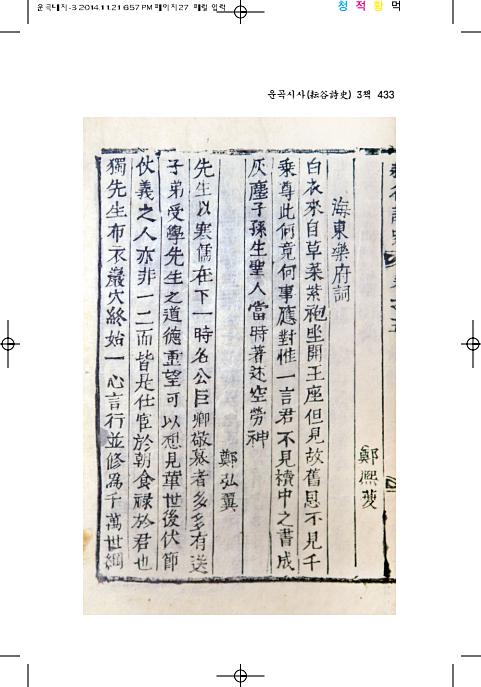 운곡대지-3 2014.11.21 6:57 PM 페이지27 매킬 입력
청 적 황 먹
운곡시사(耘谷詩史) 3책 433
鄭熙
海東樂府詞
白衣來自草萊紫袍坐開王座但見故舊恩不見千
乘尊此何竟何事應對惟一言君不見櫝中之書成
灰塵子孫生聖人當時著述空勞神
鄭弘翼
先生以寒儒在下一時名公巨卿敬慕者多多有送
子弟受學先生之道德重望可以想見輩世後伏節
伏義之人亦非一二而皆是仕宦於朝食祿於君也
獨先生布衣巖穴終始一心言行並修爲千萬世綱